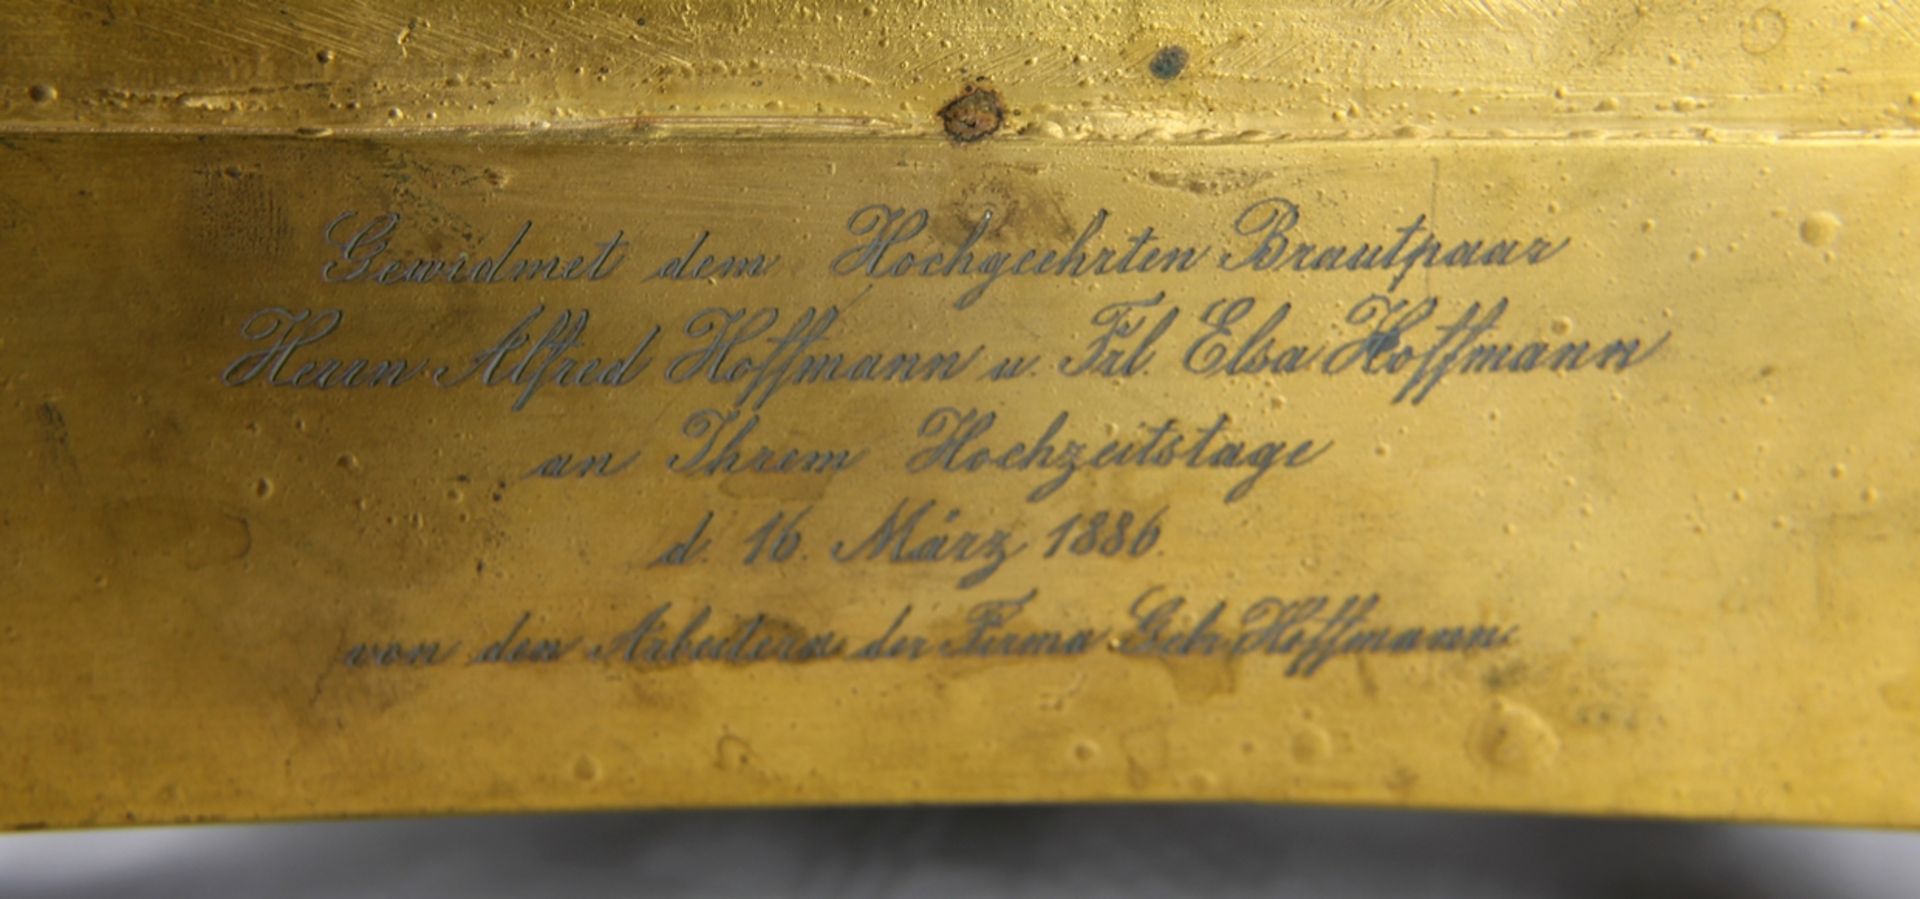 Gewidmet dem Hochgeehrten Brautpaar
Herrn Alfred Hoffmann u. Frl Elsa Hoffmann
an Ihrem Hochzeitstage
d. 16. März 1886.
von den Arbeitern der Firma Gebr. Hoffmann